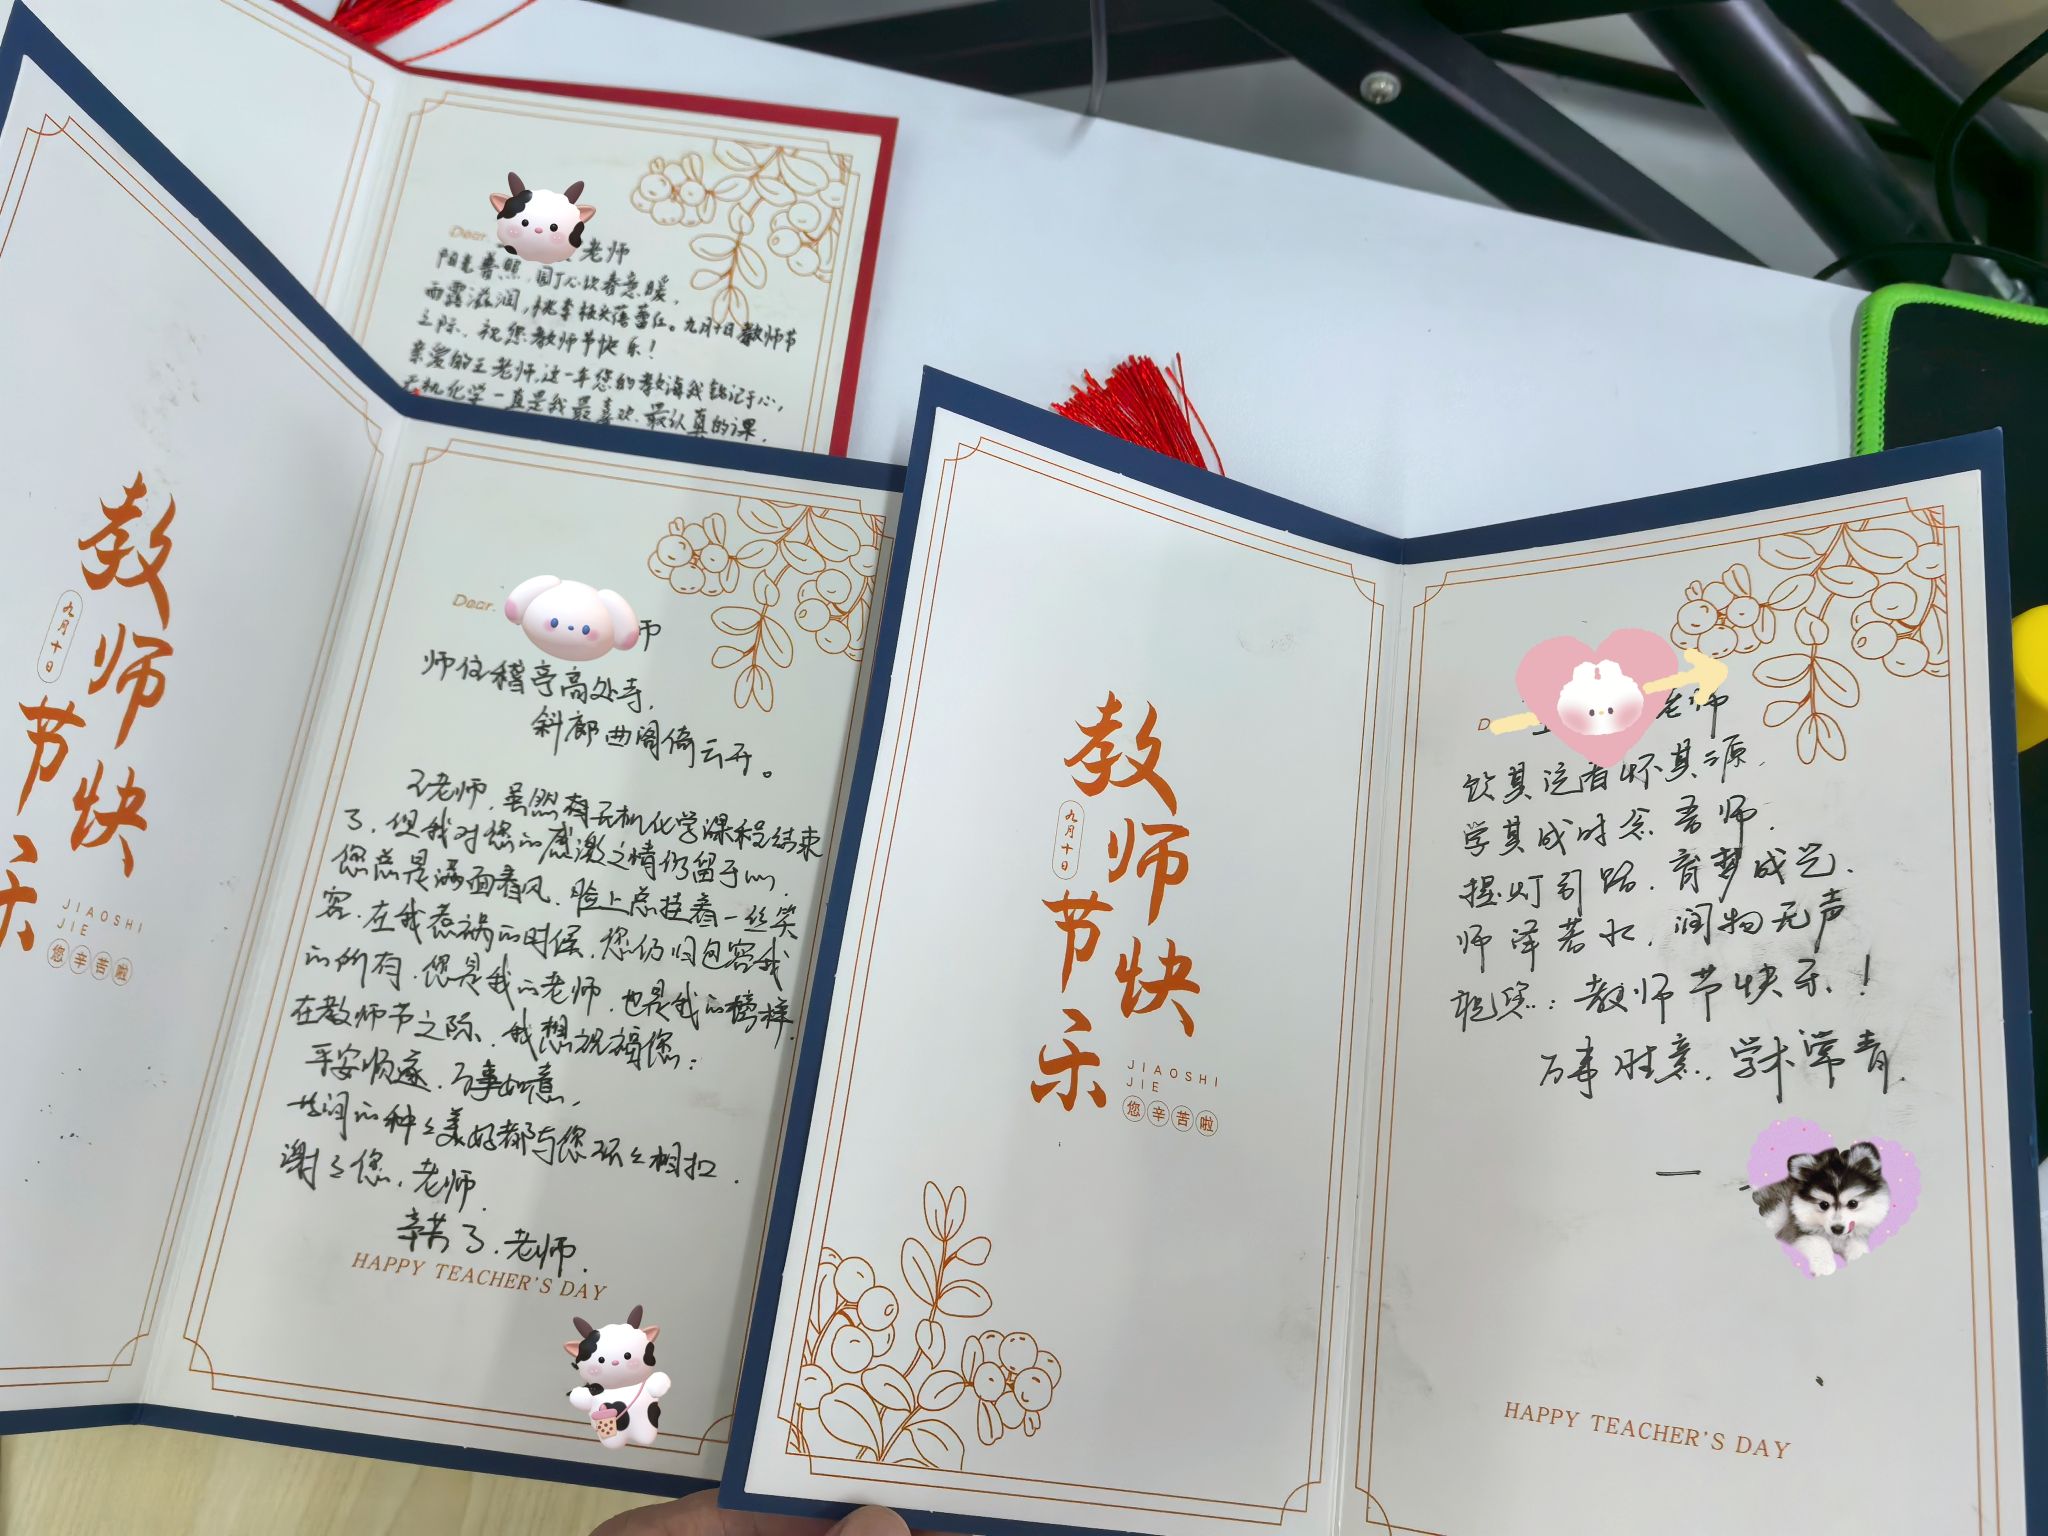 Dear.
老师
阳光普照,园丁心坎春意暖,
雨露滋润,桃李枝头蓓蕾红。九月十日教师节
之际,祝您教师节快乐!
亲爱的王老师,这一年您的教诲我铭记于心,
无机化学一直是我最喜欢、最认真的课,
教师节快乐
九月十日
JIAOSHI
JIE
您辛苦啦
Dear.
师
师住稽亭高处寺,
斜廊曲阁倚云开。
王老师,虽然无机化学课程结束
了,但我对您的感激之情仍留于心,
您总是满面春风,脸上总挂着一丝笑
容,在我惹祸的时候,您仍旧包容我
的所有,您是我的老师,也是我的榜样,
在教师节之际,我想祝福您:
平安顺遂,万事如意,
世间的种种美好都与您环环相扣.
谢谢您,老师.
辛苦了,老师.
HAPPY TEACHER'S DAY
教师节快乐
九月十日
JIAOSHI
JIE
您辛苦啦
老师
饮其流者怀其源,
学其成时念吾师.
握灯引路,育梦成光.
师泽若水,润物无声
祝您:教师节快乐!
万事胜意,学术常青.
一
HAPPY TEACHER'S DAY